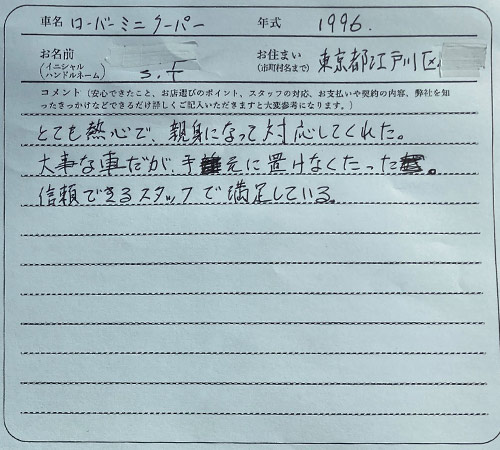 車名 ローバーミニクーパー 年式 1996.
お名前 お住まい 東京都江戸川区
(イニシャル (市町村名まで)
ハンドルネーム) S.T
コメント(安心できたこと、お店選びのポイント、スタッフの対応、お支払いや契約の内容、弊社を知
ったきっかけなどできるだけ詳しくご記入いただきますと大変参考になります。)
とても熱心で、親身になって対応してくれた。
大事な車だが、手元に置けなくたった。
信頼できるスタッフで満足している。